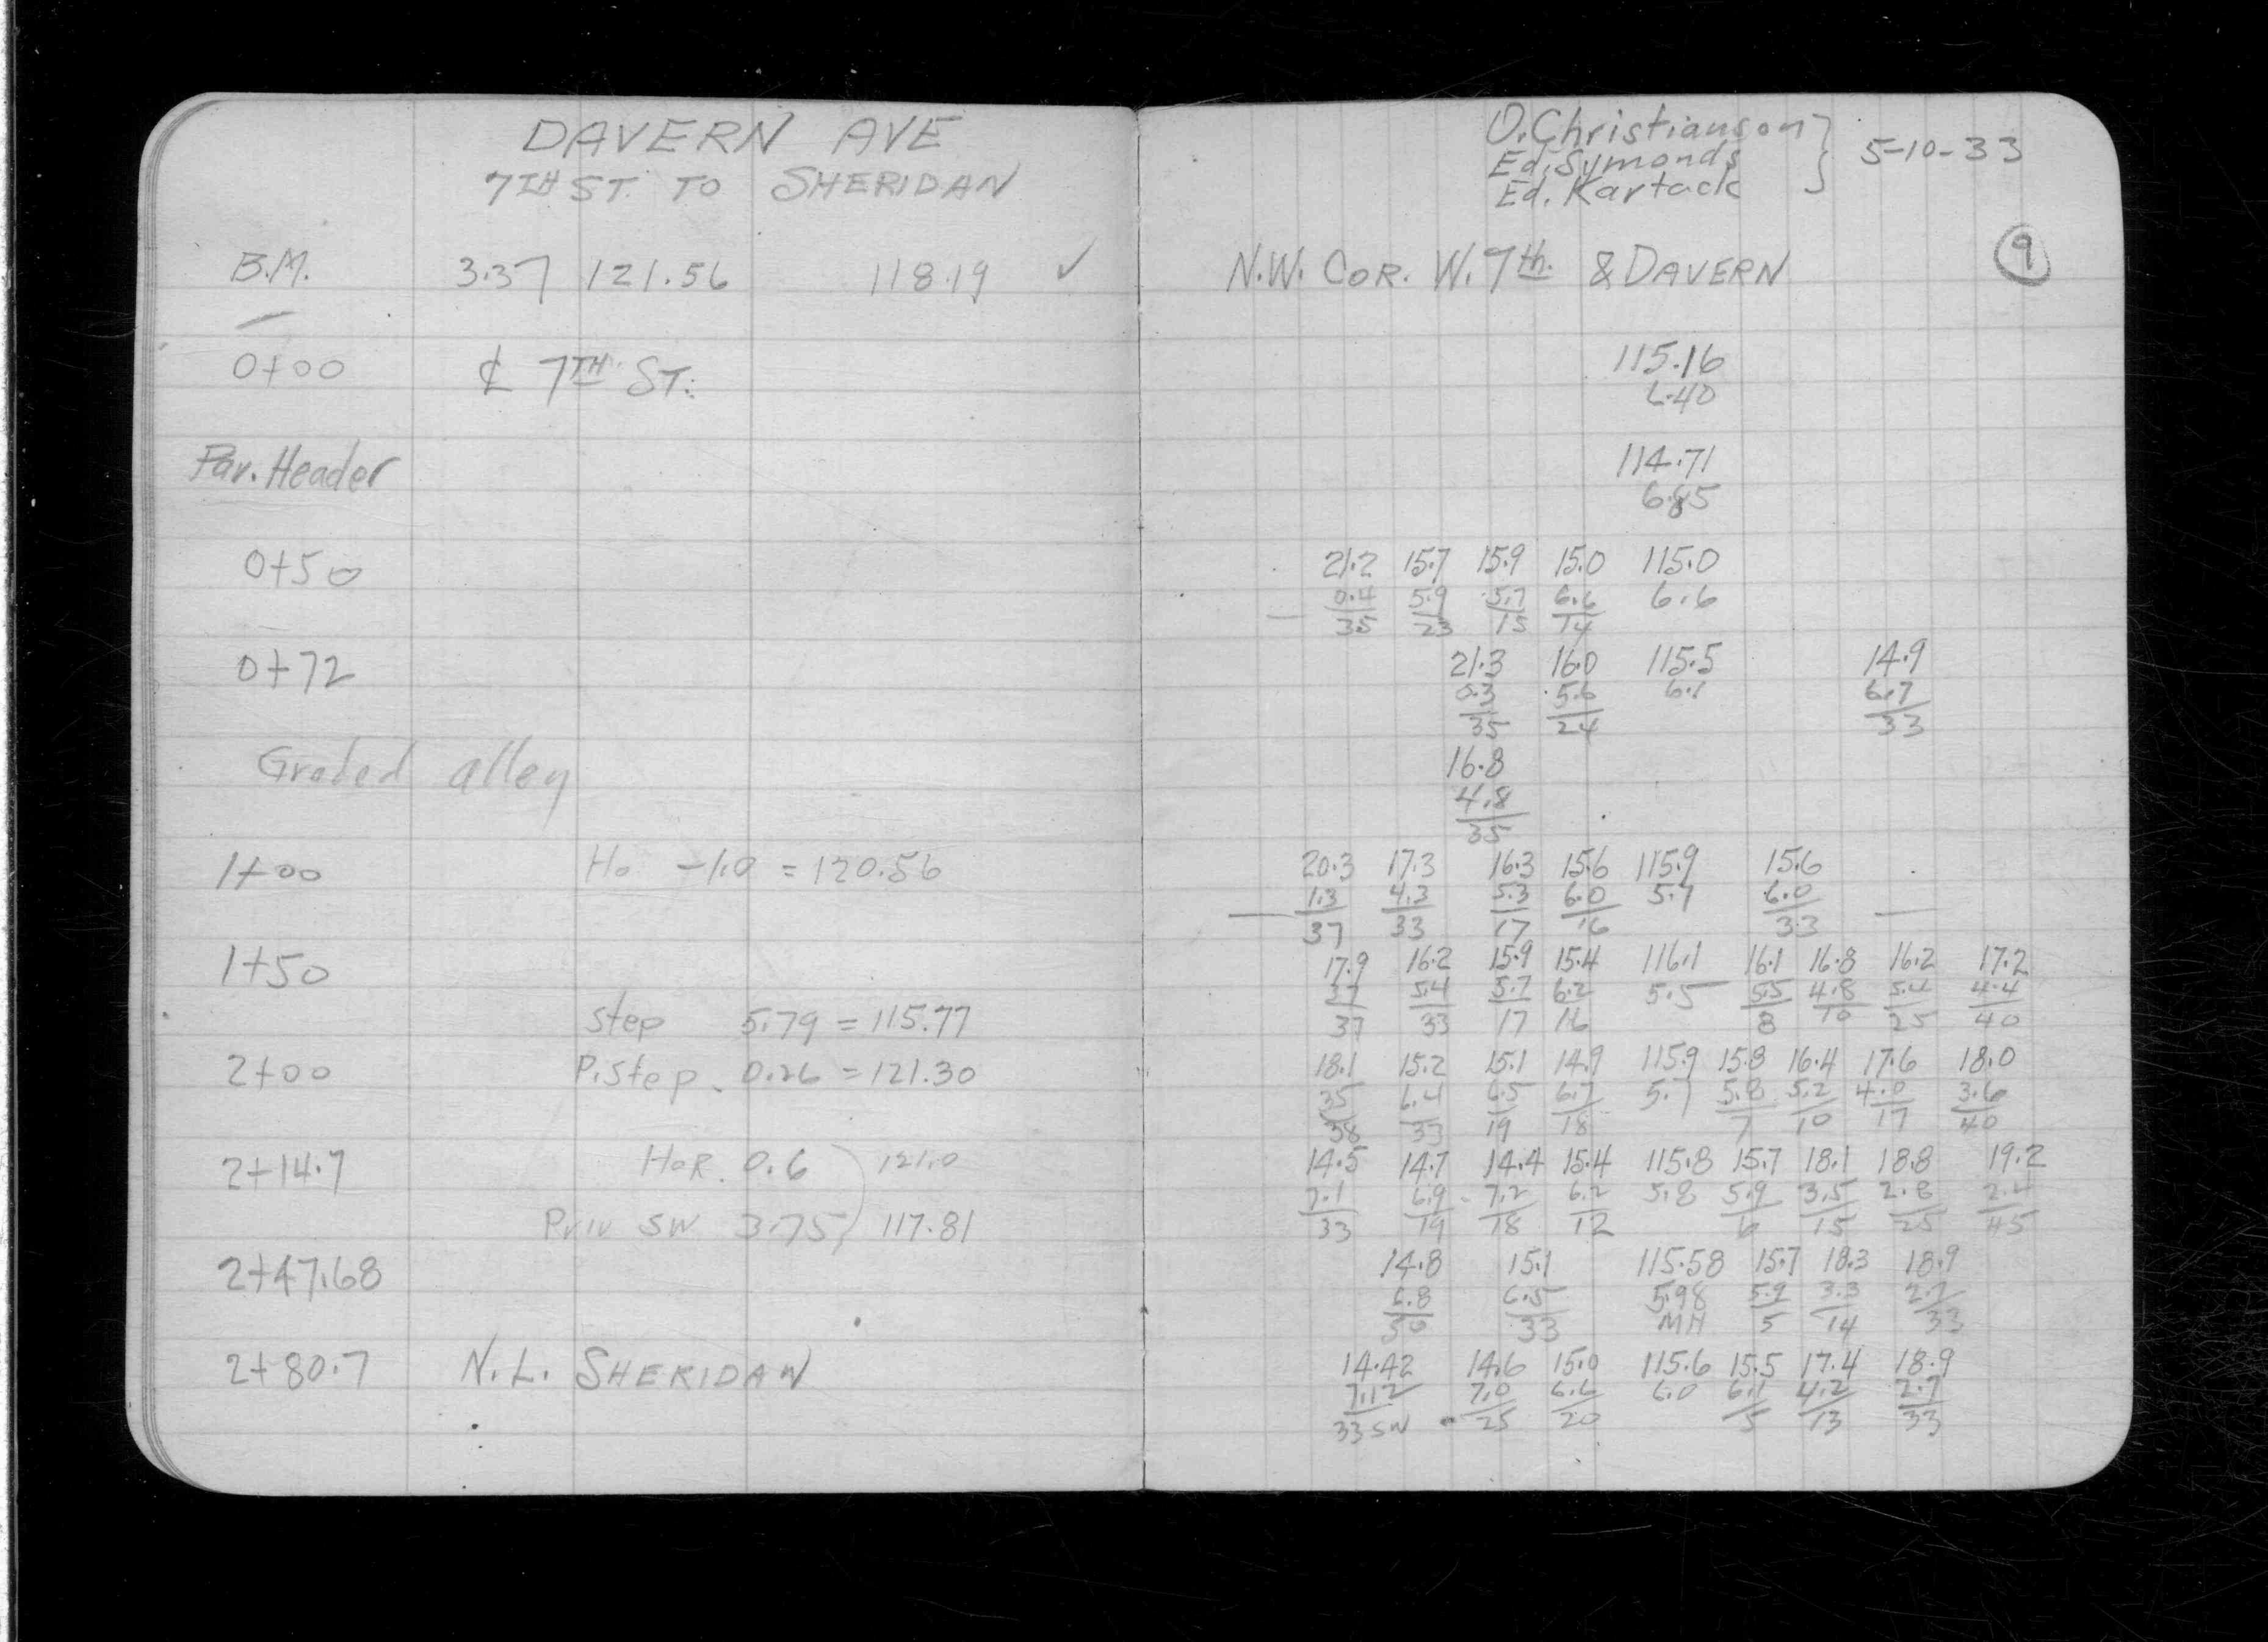 DAVERN AVE
7TH ST. TO SHERIDAN
B.M. 3.37 121.56 118.19 ✓
0+00 ℄ 7TH ST.
Pav. Header
0+50
0+72
Graded alley
1+00 Ho -1.0 = 120.56
1+50
Step 5.79 = 115.77
2+00 P.Step. 0.26 = 121.30
2+14.7 HoR. 0.6 121.0
Priv SW 3.75 117.81
2+47.68
2+80.7 N.L. SHERIDAN
O. Christianson
Ed. Symonds
Ed. Kartack
5-10-33
9
N.W. COR. W. 7th. & DAVERN
115.16
6.40
114.71
6.85
21.2 15.7 15.9 15.0 115.0
0.4 5.9 5.7 6.6 6.6
35 23 15 14
21.3 16.0 115.5 14.9
0.3 5.6 6.1 6.7
35 24 33
16.8
4.8
35
20.3 17.3 16.3 15.6 115.9 15.6
1.3 4.3 5.3 6.0 5.7 6.0
37 33 17 16 33
17.9 16.2 15.9 15.4 116.1 16.1 16.8 16.2 17.2
3.7 5.4 5.7 6.2 5.5 5.5 4.8 5.4 4.4
37 33 17 16 8 10 25 40
18.1 15.2 15.1 14.9 115.9 15.8 16.4 17.6 18.0
35 6.4 6.5 6.7 5.7 5.8 5.2 4.0 3.6
38 33 19 18 7 10 17 40
14.5 14.7 14.4 15.4 115.8 15.7 18.1 18.8 19.2
7.1 6.9 7.2 6.2 5.8 5.9 3.5 2.8 2.4
33 19 18 12 6 15 25 45
14.8 15.1 115.58 15.7 18.3 18.9
6.8 6.5 5.98 5.9 3.3 2.7
33 MH 5 14 33
14.42 14.6 15.0 115.6 15.5 17.4 18.9
7.12 7.0 6.6 6.0 6.1 4.2 2.7
33 SW 25 20 5 13 33